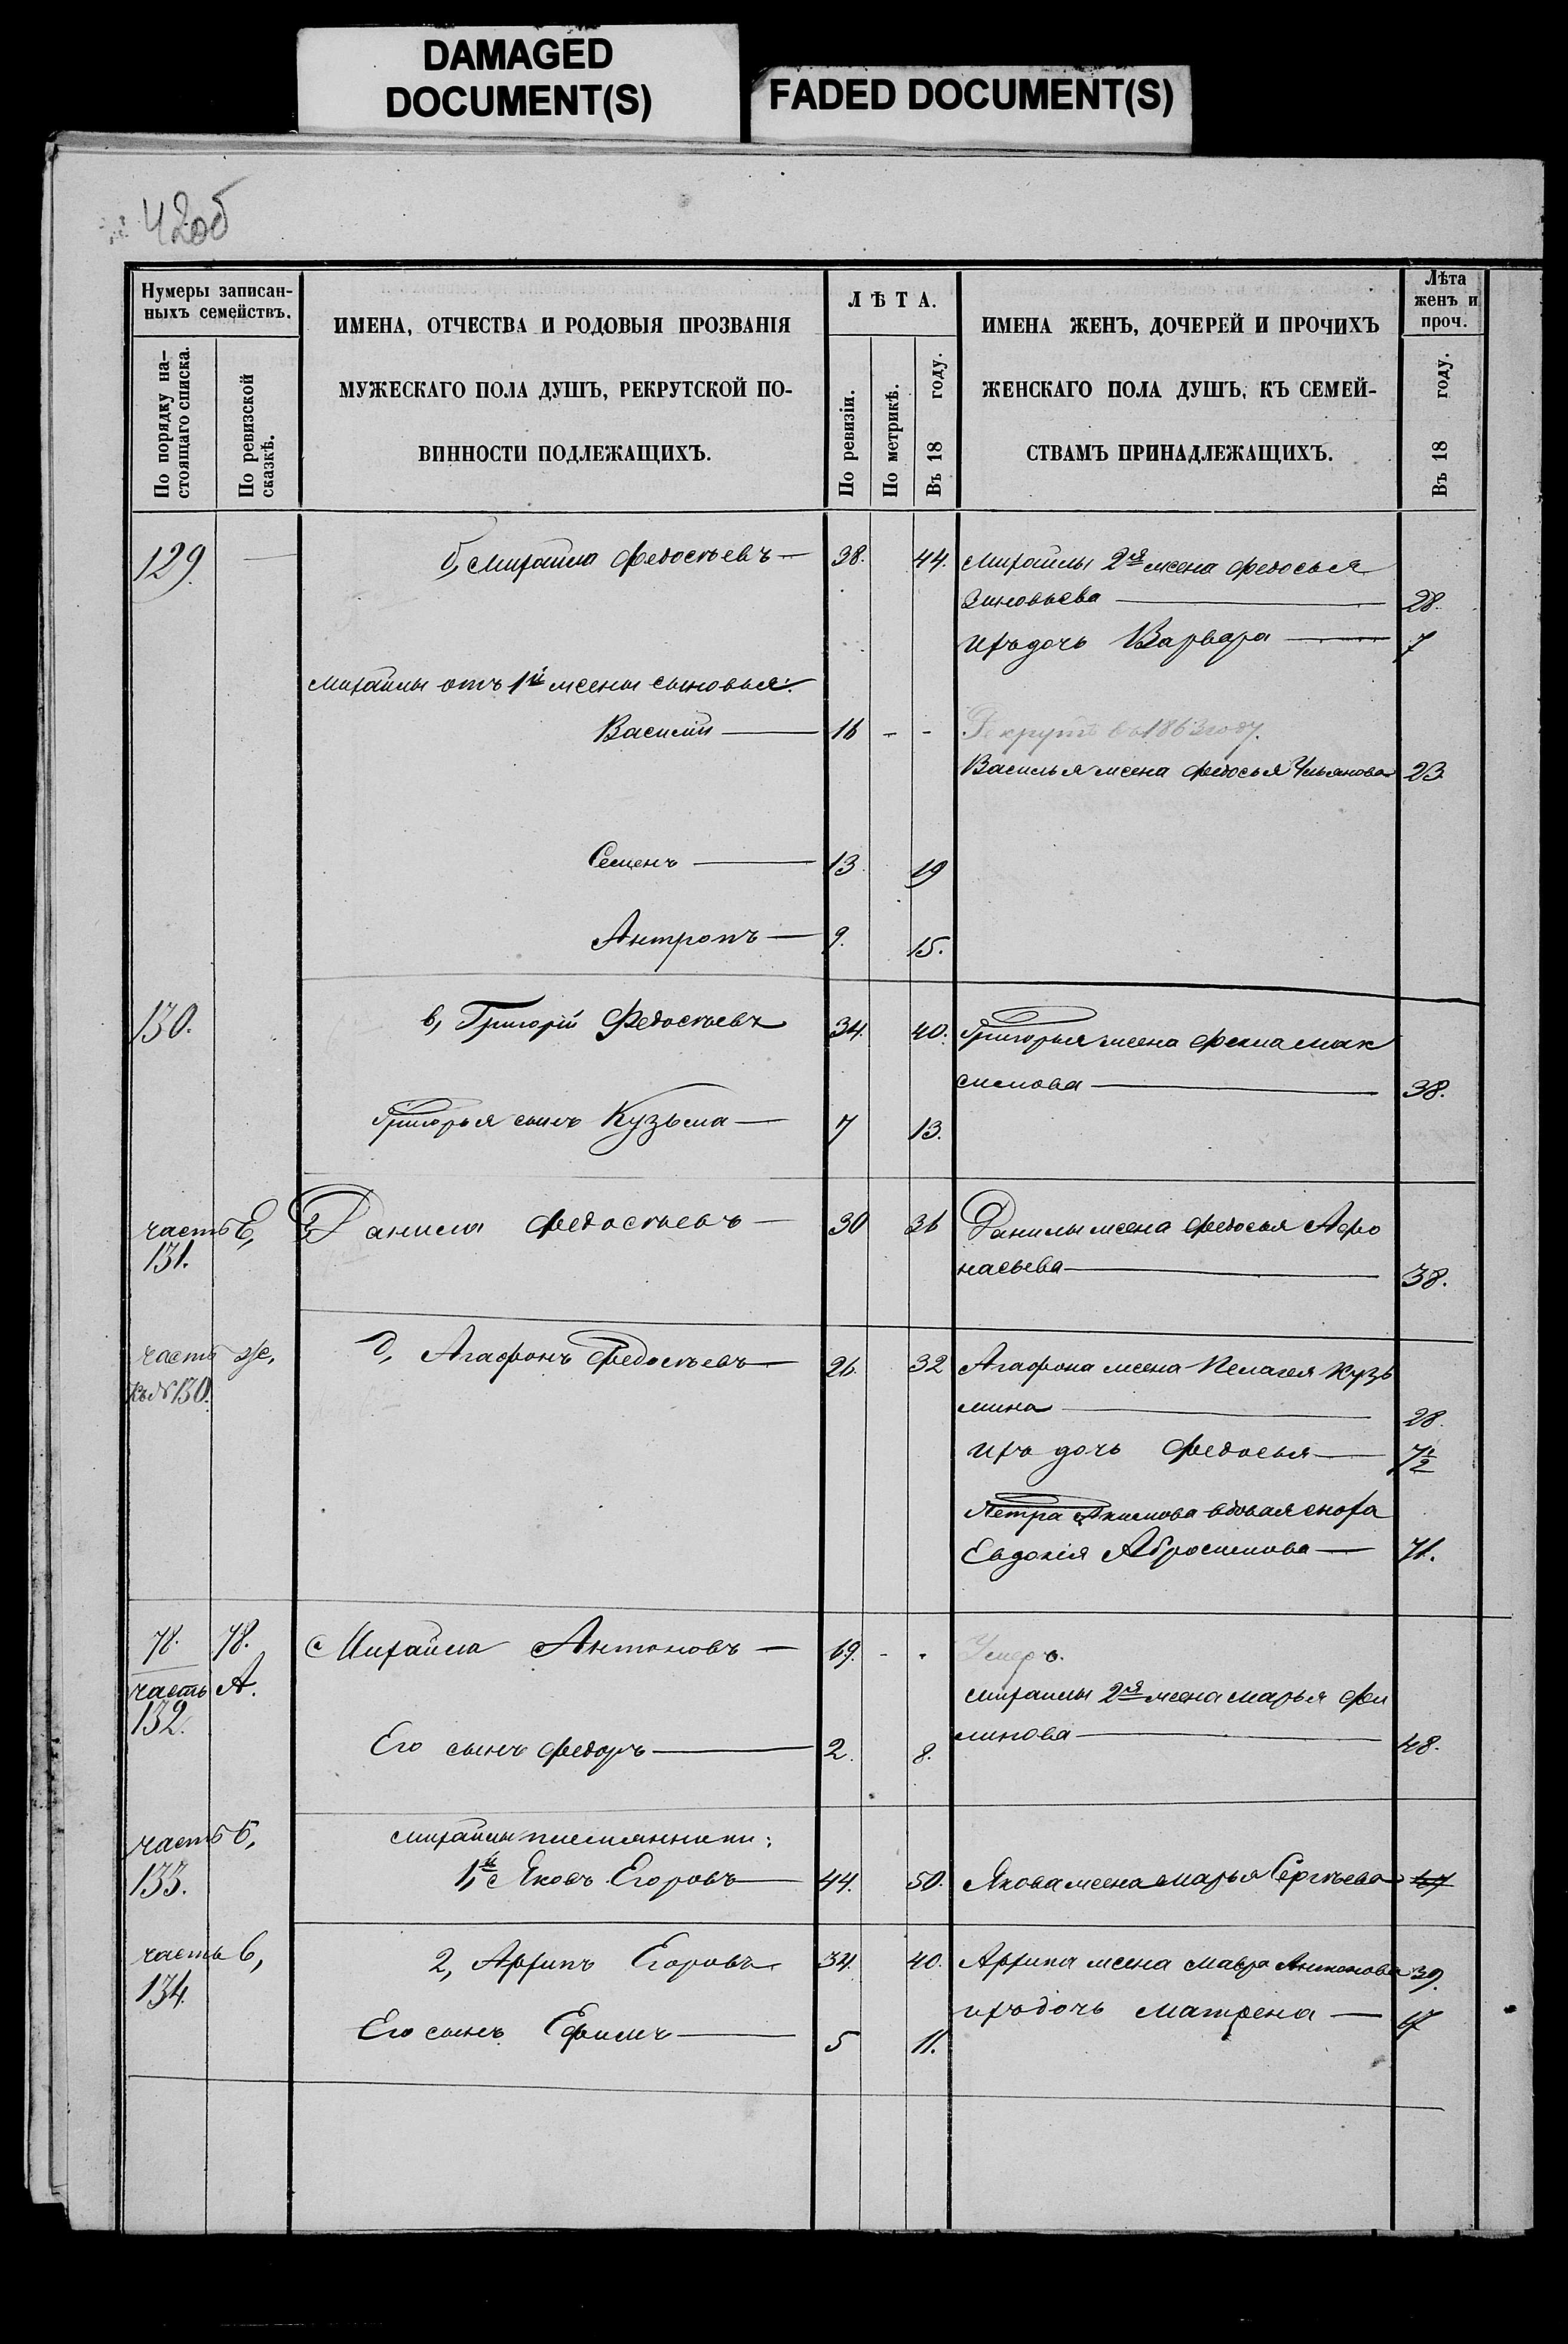 DAMAGED
DOCUMENT(S)
FADED DOCUMENT(S)
42об
Нумеры записан-
ныхъ семействъ.
По порядку на-
стоящаго списка.
По ревизской
сказкѣ.
ИМЕНА, ОТЧЕСТВА И РОДОВЫЯ ПРОЗВАНІЯ
МУЖЕСКАГО ПОЛА ДУШЪ, РЕКРУТСКОЙ ПО-
ВИННОСТИ ПОДЛЕЖАЩИХЪ.
ЛѢТА.
По ревизіи.
По метрикѣ.
Въ 18 году.
ИМЕНА ЖЕНЪ, ДОЧЕРЕЙ И ПРОЧИХЪ
ЖЕНСКАГО ПОЛА ДУШЪ, КЪ СЕМЕЙ-
СТВАМЪ ПРИНАДЛЕЖАЩИХЪ.
Лѣта
женъ и
проч.
Въ 18 году.
129. — б, Михайла Федосѣевъ — 38. 44. Михайлы 2я жена Федосья
Зиновьева — 28.
ихъ дочь Варвара — 7
Михайлы отъ 1й жены сыновья:
Василій — 16 - - Рекрутъ въ 1863 году.
Василья жена Федосья Ульянова 23.
Семенъ — 13. 19
Антропъ — 9. 15.
130. в, Григорій Федосѣевъ 34. 40. Григорья жена Фекла Мак
симова — 38.
Григорья сынъ Кузьма — 7 13.
часть Е, Данила Федосѣевъ — 30 36 Данилы жена Федосья Афо
131. насьева — 38.
часть Ж, д, Агафонъ Федосѣевъ — 26. 32 Агафона жена Пелагея Кузь
къ № 130. мина — 28.
ихъ дочь Федосья — 7 1/2
Петра Акимова вдовая сноха
Евдокія Абросимова — 71.
78. 78. Михайла Антоновъ — 69. - - Умеръ.
часть А. Михайлы 2я жена Марья Фи
132. липова — 48.
Его сынъ Федоръ — 2. 8.
часть Б, Михайлы племянники:
133. 1й, Яковъ Егоровъ — 44. 50. Якова жена Марья Сергѣева 47
часть В, 2, Архипъ Егоровъ 34. 40. Архипа жена Мавра Антонова 39.
134. ихъ дочь Матрена — 17
Его сынъ Ефимъ — 5 11.